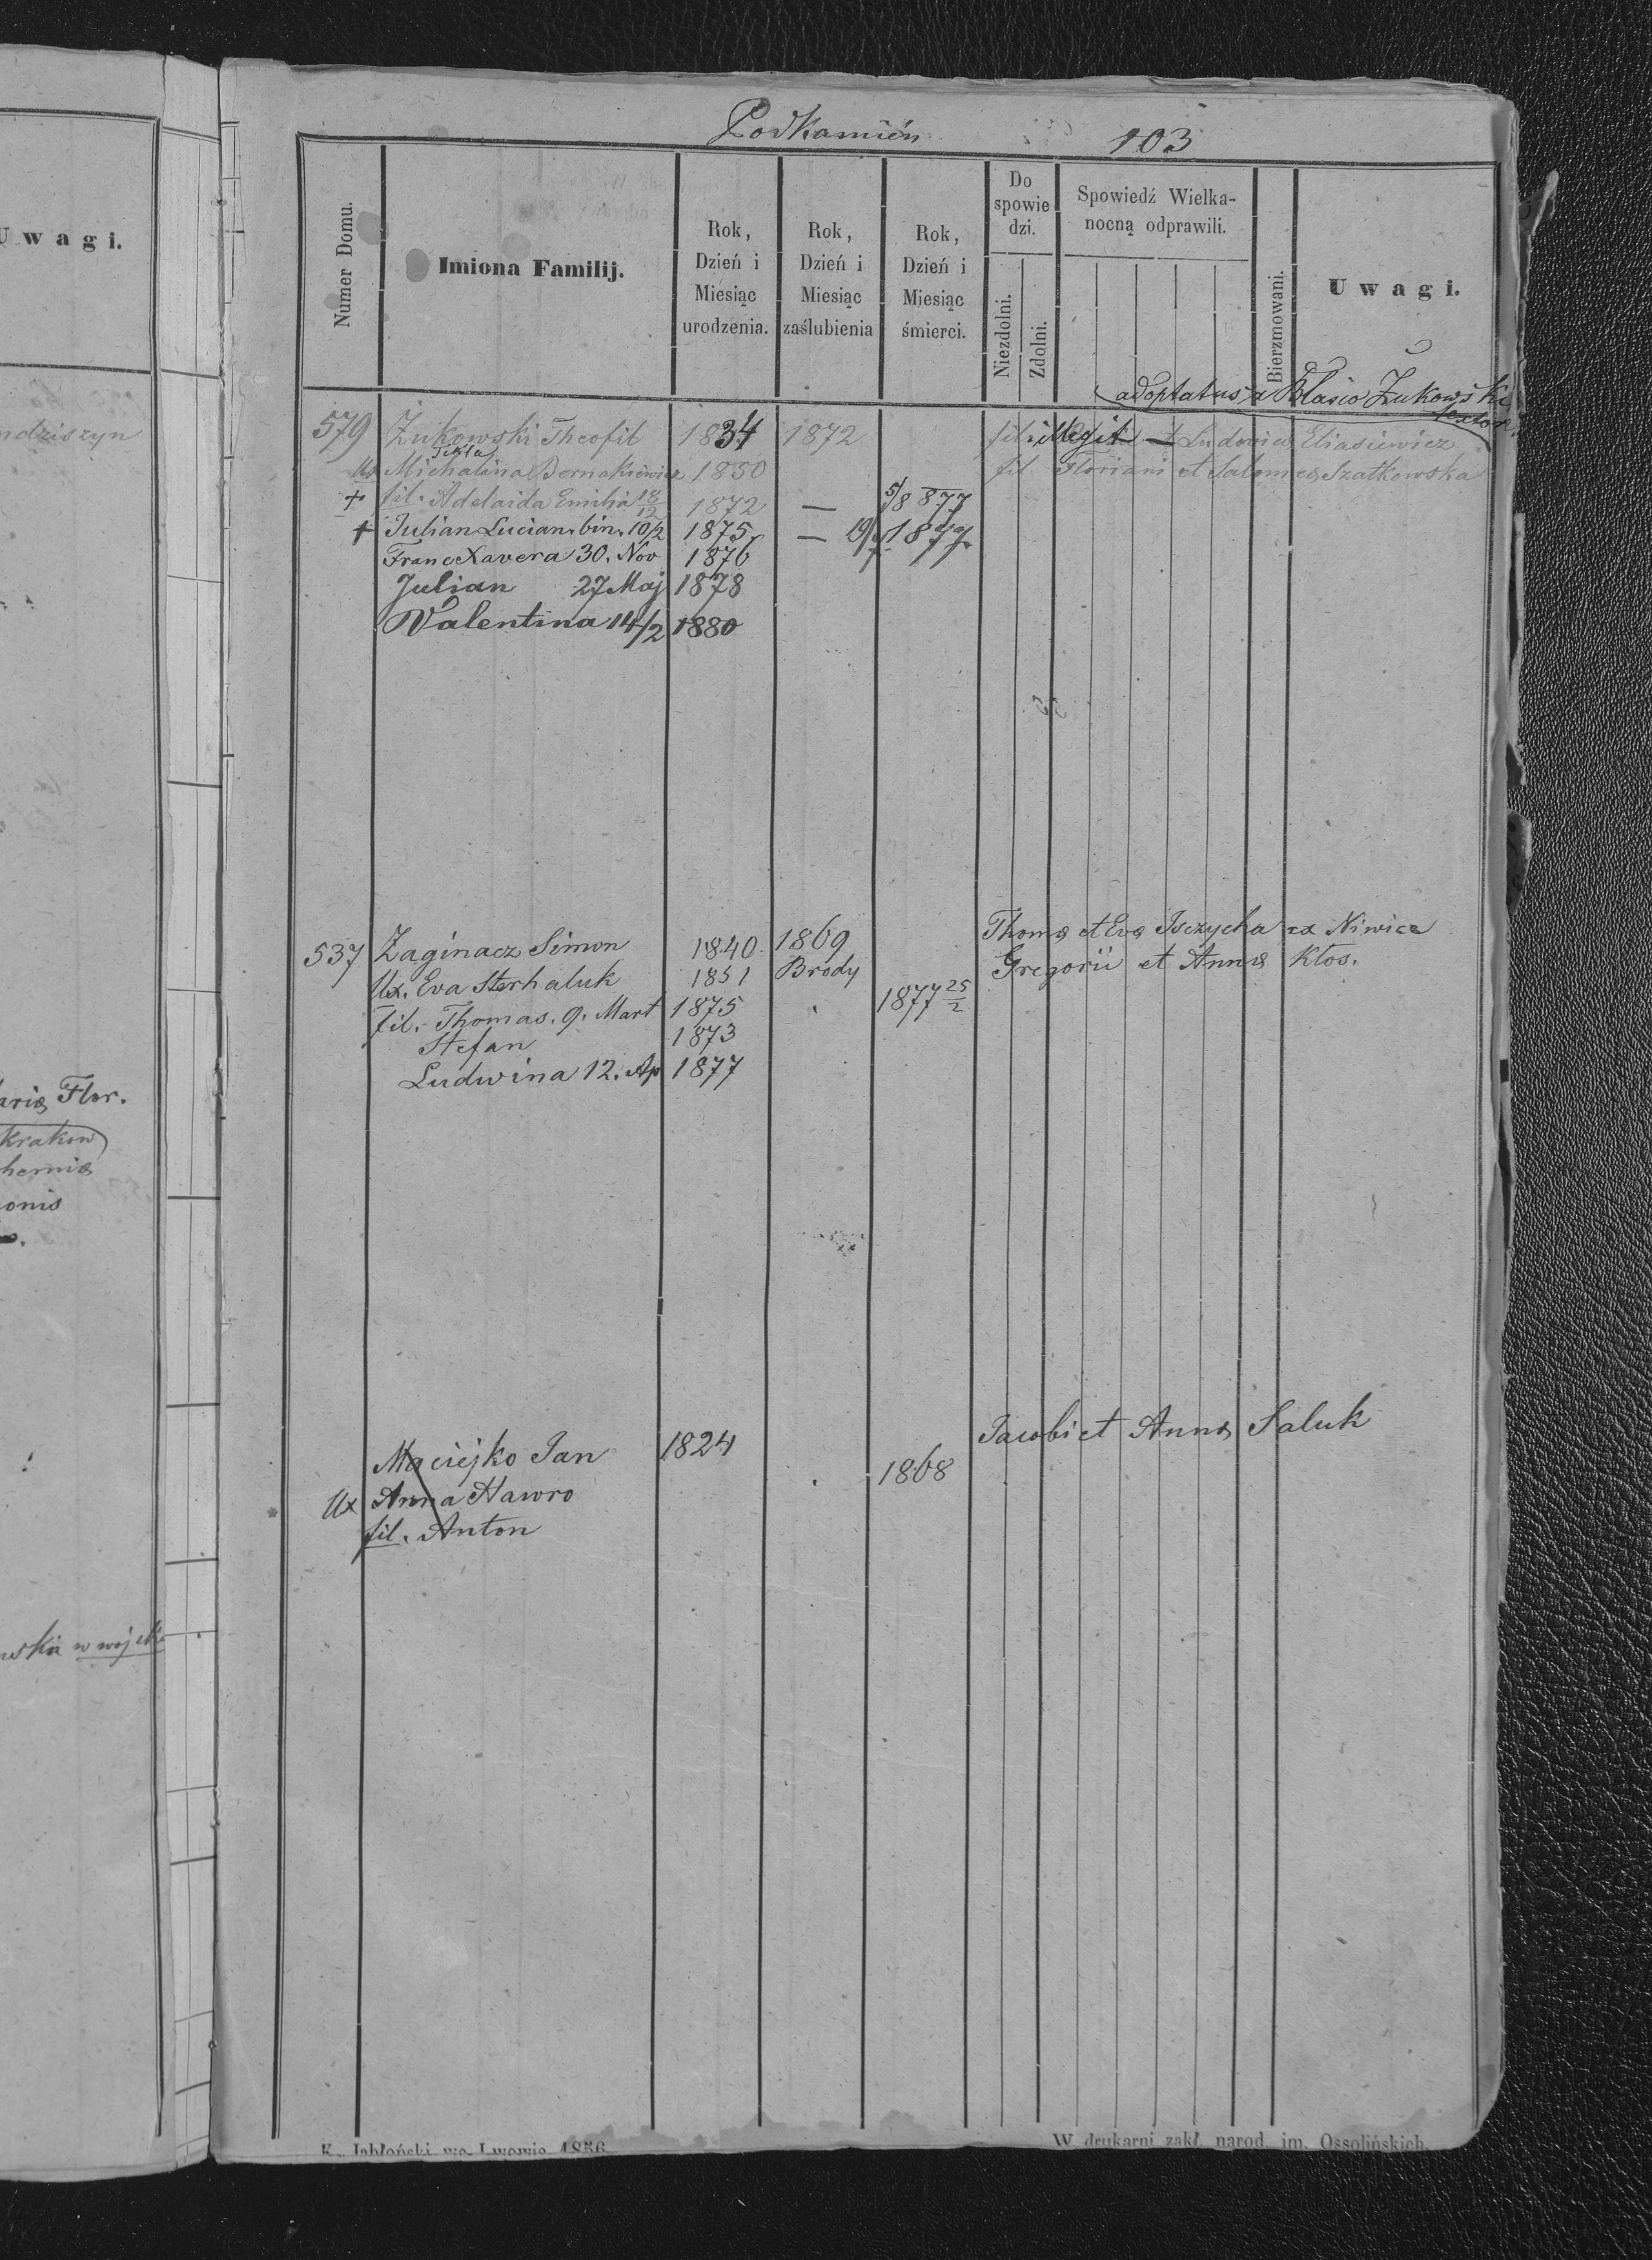 Podkamień 103
Uwagi.
Numer Domu.
Imiona Familij.
Rok, Dzień i Miesiąc urodzenia.
Rok, Dzień i Miesiąc zaślubienia
Rok, Dzień i Miesiąc śmierci.
Do spowiedzi.
Niezdolni.
Zdolni.
Spowiedź Wielkanocną odprawili.
Bierzmowani.
Uwagi.
adoptatus a Blasio Żukowski textor
ndziszyn
579 Żukowski Theofil 1834 1872 fil: illegit Ludovica Eliasiewicz
Tekla
Ux Michalina Bernakiewicz 1850 fil Floriani et Salomea Szatkowska
+ fil. Adelaida Emilia 18/12 1872 — 5/8 877
+ Julian Lucian. bin. 10/2 1875 — 19/ 1877
Franc Xavera 30. Nov 1876
Julian 27 Maj 1878
Valentina 14/2 1880
537 Zaginacz Simon 1840 1869 Thoma et Eva Isczycha ex Niwice
Ux. Eva Sterhaluk 1851 Brody Gregorii et Anna Kłos.
fil. Thomas. 9. Mart 1875 1877 25/2
Stefan 1873
Ludwina 12. Ap 1877
aria Flor.
krakow
hernia
onis
Maciejko Jan 1824 Jacobi et Anna Saluk
Ux Anna Hawro 1868
fil. Anton
wska w wojsk
K. Jabłoński we Lwowie 1856
W drukarni zakł. narod. im. Ossolińskich.